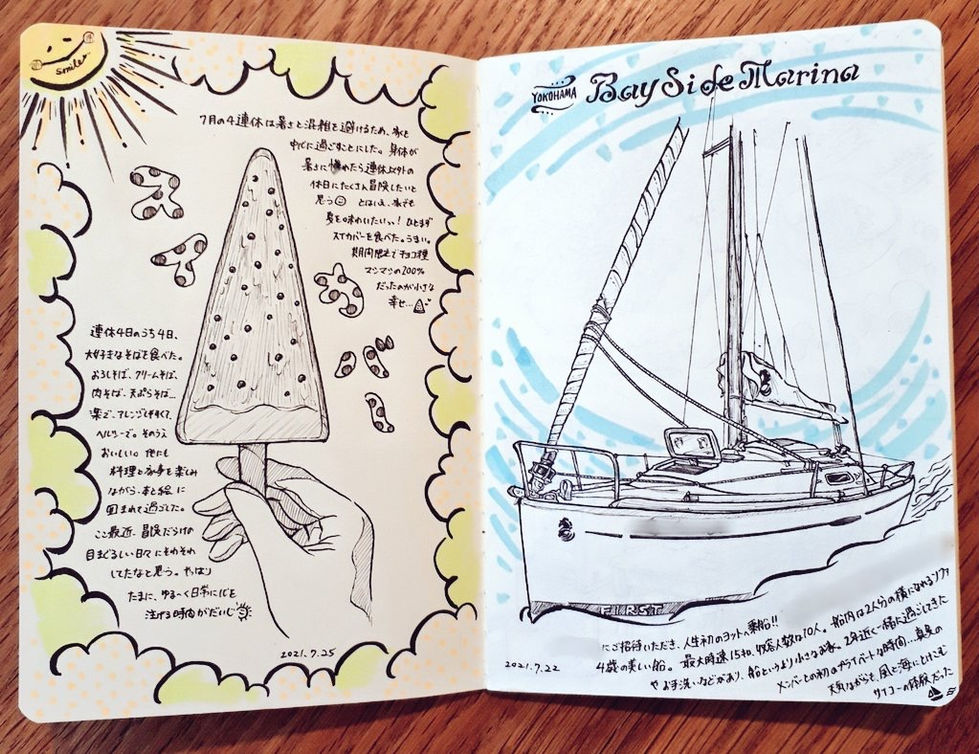 smiles
7月の4連休は暑さと混雑を避けるため、家を
中心に過ごすことにした。身体が
暑さに慣れたら連休以外の
休日にたくさん冒険したいと
思う とはいえ、家でも
夏を味わいたいっ! ひとまず
スイカバーを食べた。うまい。
期間限定でチョコ種
マシマシの200%
だったのが小さな
幸せ…
スイカバー
連休4日のうち4日、
大好きなそばを食べた。
おろしそば、クリームそば、
肉そば、天ぷらそば…
楽で、アレンジしやすくて、
ヘルシーで。そのうえ
おいしい。他にも
料理と家事を楽しみ
ながら、本と絵に
囲まれて過ごした。
ここ最近、冒険だらけの
目まぐるしい日々にそわそわ
してたなと思う。やっぱり
たまに、ゆる〜く日常に心を
注げる時間がだいじ
2021.7.25
YOKOHAMA
BaySide Marina
FIRST
2021.7.22
にご招待いただき、人生初のヨット乗船!!
4歳の美しい船。最大時速15knot、収容人数は10人。船内は2人分の横になれるソファ
やお手洗いなどがあり、船というより小さなお家。2年近く一緒に過ごしてきた
メンバーとの初のプライベートな時間…真夏の
天気ながらも、風と海にとけこむ
サイコーの体験だった